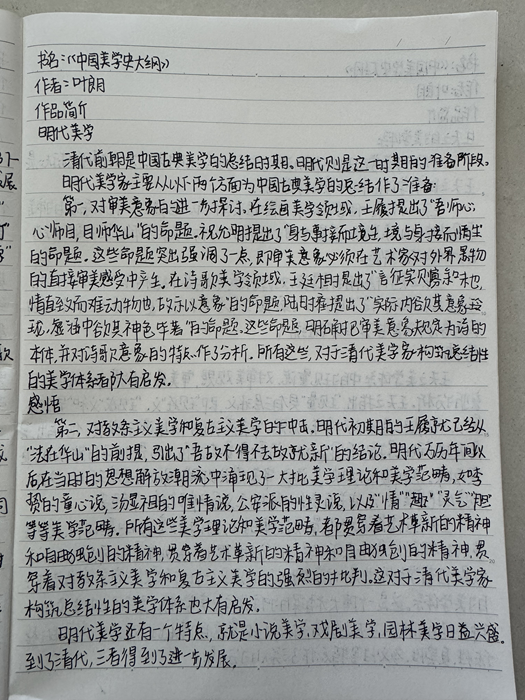 书名:《中国美学史大纲》
作者:叶朗
作品简介
明代美学
清代前期是中国古典美学的总结时期。明代则是这一时期的准备阶段。
明代美学家主要从以下两个方面为中国古典美学的总结作了准备
第一,对审美意象的进一步探讨。在绘画美学领域,王履提出了“吾师心,
心师目,目师华山”的命题。祝允明提出了“身与事接而境生,境与身接而情生”
的命题。这些命题突出强调了一点,即审美意象必须在艺术家对外界景物
的直接审美感受中产生。在诗歌美学领域,王廷相提出了“言征实则寡余味也,
情直致而难动物也,故示以意象”的命题,陆时雍提出了“实际内欲其意象玲
珑,虚涵中欲其神色毕著”的命题。这些命题,明确把审美意象规定为诗的
本体,并对诗歌意象的特点作了分析。所有这些,对于清代美学家构筑总结性
的美学体系都大有启发。
感悟
第二,对教条主义美学和复古主义美学的冲击。明代初期的王履就已经从
“法在华山”的前提,引出了“吾故不得不去故而就新”的结论。明代万历年间以
后在当时的思想解放潮流中涌现了一大批美学理论和美学范畴,如李
贽的童心说,汤显祖的唯情说,公安派的性灵说,以及“情”“趣”“灵气”“胆”
等等美学范畴。所有这些美学理论和美学范畴,都贯穿着艺术革新的精神
和自由独创的精神,贯穿着艺术革新的精神和自由独创的精神,贯
穿着对教条主义美学和复古主义美学的强烈的批判。这对于清代美学家
构筑总结性的美学体系也大有启发。
明代美学还有一个特点,就是小说美学,戏剧美学,园林美学日益兴盛。
到了清代,三者得到了进一步发展。